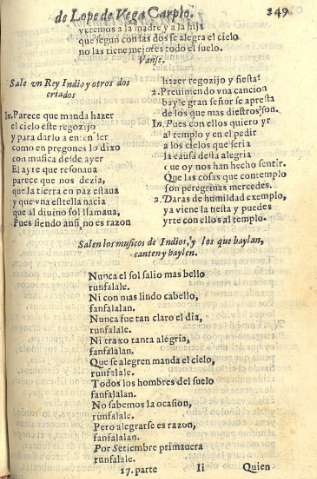 de Lope de Vega Carpio. 249
veremos a la madre y a la hija
que segun con las dos se alegra el cielo
no las tiene mejores todo el suelo.
Vanse.
Sale vn Rey Indio y otros dos
criados
In. Parece que manda hazer
el cielo este regozijo
y para darlo a en
como en pregones lo dixo
con musica desde ayer
El ayre que resonaua
parece que nos dezia,
que la tierra en paz estaua
y que vna estrella nacia
que al diuino sol llamaua,
Pues siendo ansi, no es razon
hazer regozijo y fiesta?
2. Preuiniendo vna cancion
bayle gran señor se apresta
de los que mas diestros son.
In. Pues con ellos quiero yr
al templo y en el pedir
a los cielos que seria
la causa desta alegria
que oy nos han hecho sentir.
Que las cosas que contemplo
son peregrinas mercedes.
2. Daras de humildad exemplo,
ya viene la fiesta y puedes
yrte con ellos al templo.
Salen los musicos de Indios, y los que baylan,
canten y baylen.
Nunca el sol salio mas bello
runfalale.
Ni con mas lindo cabello,
fanfalalan.
Nunca fue tan claro el dia,
runfalale.
Ni traxo tanta alegria,
fanfalalan.
Que se alegren manda el cielo,
runfalale.
Todos los hombres del suelo
fanfalalan.
No sabemos la ocasion,
runfalale.
Pero alegrarse es razon,
fanfalalan.
Por Setiembre primauera
runfalale.
17. parte Ii Quien